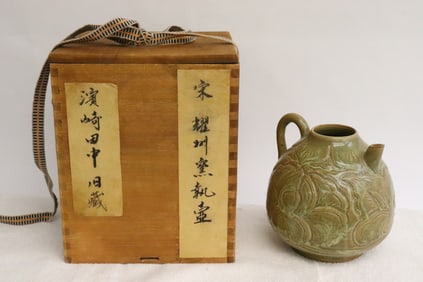 宋 耀州窯執壺
濱崎田中旧藏